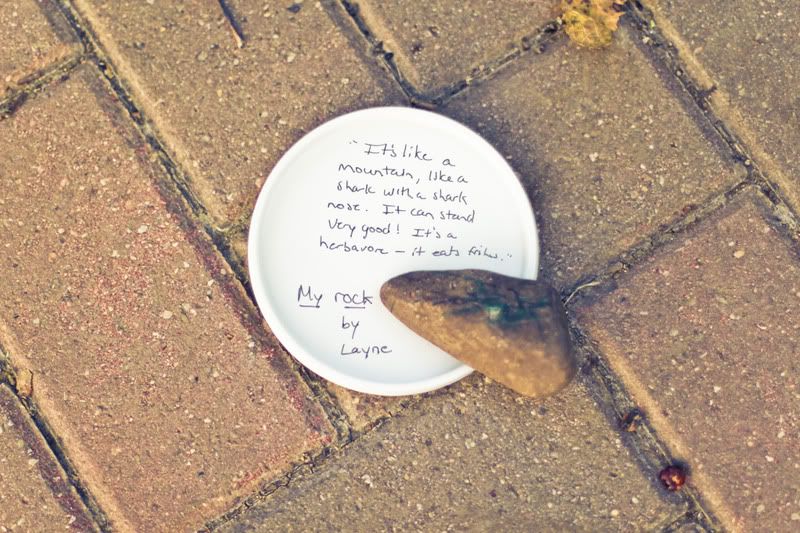 "It's like a
mountain, like a
shark with a shark
nose. It can stand
very good! It's a
herbavore – it eats fishes."
My rock
by
Layne